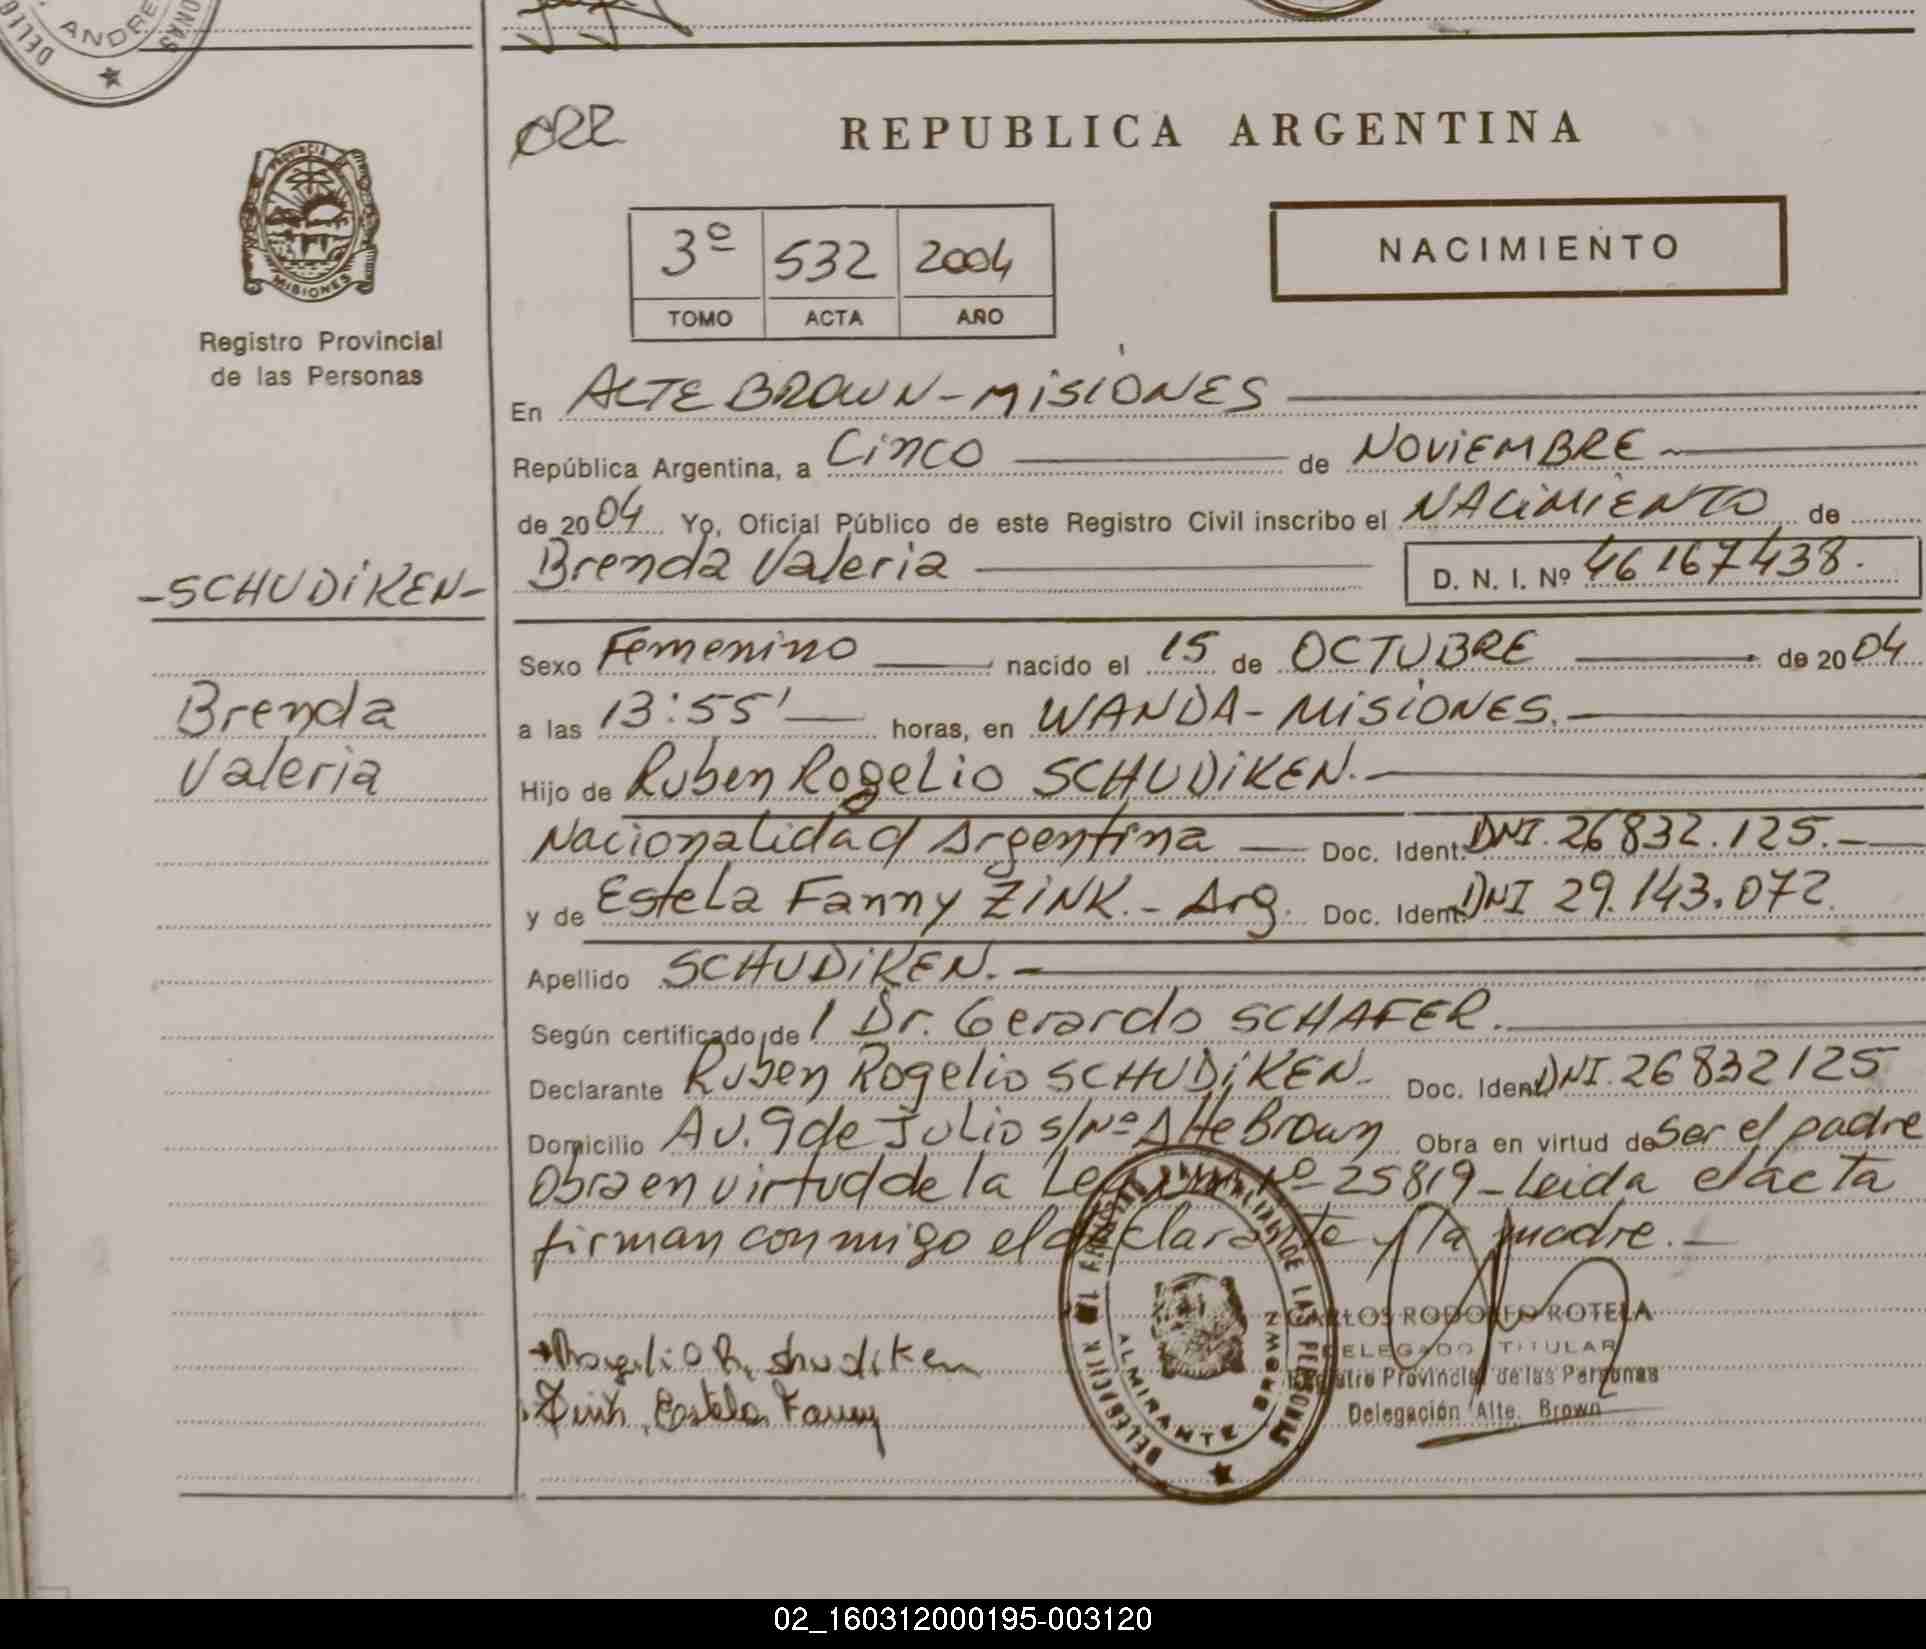 ANDRE
DELE
022
REPUBLICA ARGENTINA
PROVINCIA
MISIONES
Registro Provincial
de las Personas
3º 532 2004
TOMO ACTA AÑO
NACIMIENTO
En ALTE BROWN - MISIONES
República Argentina, a Cinco de NOVIEMBRE
de 2004 Yo, Oficial Público de este Registro Civil inscribo el NACIMIENTO de
Brenda Valeria D. N. I. Nº 46167438.
-SCHUDIKEN-
Brenda
Valeria
Sexo Femenino nacido el 15 de OCTUBRE de 2004
a las 13:55' horas, en WANDA - MISIONES.
Hijo de Ruben Rogelio SCHUDIKEN.
Nacionalidad Argentina Doc. Ident. DNI. 26832.125.-
y de Estela Fanny ZINK.- Arg. Doc. Ident. DNI 29.143.072.
Apellido SCHUDIKEN.-
Según certificado de / Dr. Gerardo SCHAFER.
Declarante Ruben Rogelio SCHUDIKEN. Doc. Ident. DNI. 26832125
Domicilio Av. 9 de Julio s/Nº Alte Brown Obra en virtud de Ser el padre
Obra en virtud de la Ley Nº 25819 - Leida el acta
firman conmigo el declarante y la madre.-
Rogelio R. Shudiken
Zink Estela Fanny
ALMIRANTE BROWN
CARLOS RODOLFO ROTELA
DELEGADO TITULAR
Registro Provincial de las Personas
Delegación Alte. Brown
02_160312000195-003120